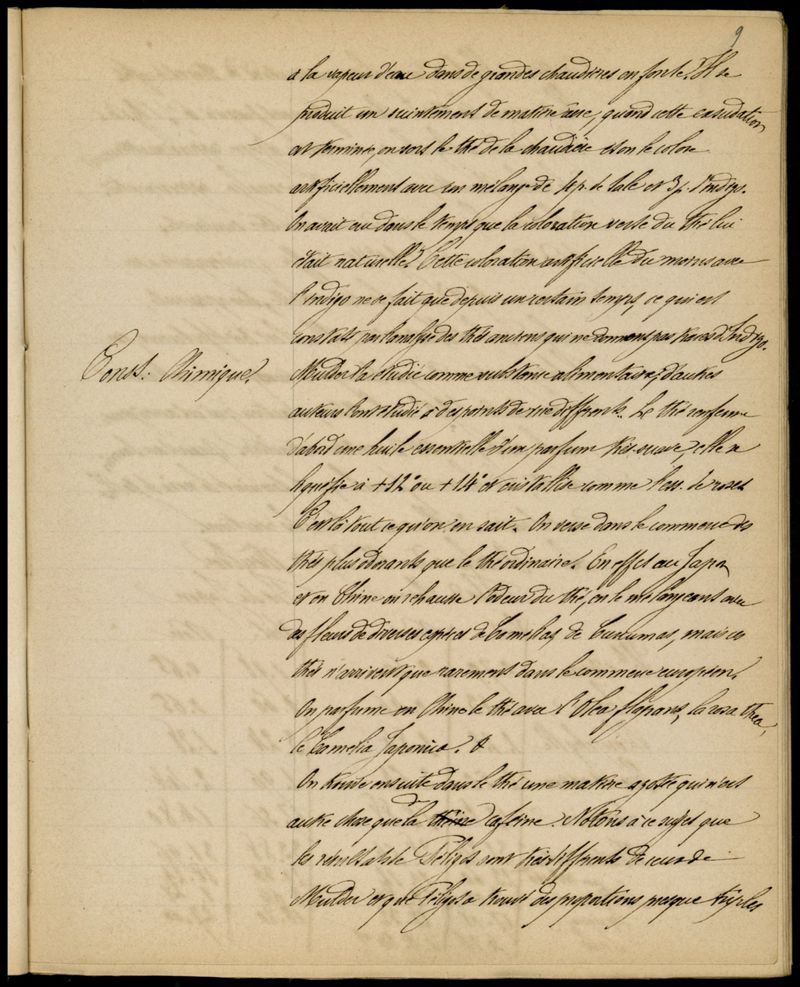 9
à la vapeur d'eau dans de grandes chaudières en fonte. Il se
produit un suintement de matière âcre, quand cette exsudation
est terminée, on sort le thé de la chaudière et on le colore
artificiellement avec un mélange de 4 p. de talc et 3 p. d'indigo.
On avait cru dans le temps que la coloration verte du thé lui
était naturelle. Cette coloration artificielle du moins avec
l'indigo ne se fait que depuis un certain temps, ce qui est
constaté par l'analyse des thés anciens qui ne donnent pas traces d'Indigo.
Const: Chimique.
Mulder l'a étudié comme substance alimentaire, d'autres
auteurs l'ont étudié à des points de vue différents. Le thé renferme
d'abord une huile essentielle d'un parfum très suave, elle se
liquéfie à +12° ou +14° et cristallise comme l'ess. de roses
C'est là tout ce qu'on en sait. On verse dans le commerce des
thés plus odorants que le thé ordinaire. En effet au Japon
et en Chine on rehausse l'odeur du thé, en le mélangeant avec
des fleurs de diverses espèces de Camelias, de Curcumas, mais ces
thés n'arrivent que rarement dans le commerce européen.
On parfume en Chine le thé avec l'Olea fragrans, la rosa thea,
le Camelia Japonica. &
On trouve ensuite dans le thé une matière azotée qui n'est
autre chose que la caféine. Notons à ce sujet que
les résultats de Péligot sont très différents de ceux de
Mulder et que Péligot a trouvé des proportions presque triples